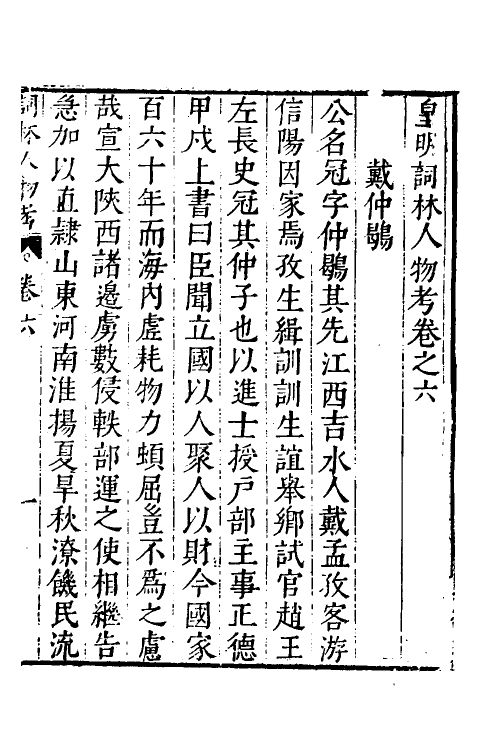 皇明詞林人物考卷之六
戴仲鶡
公名冠字仲鶡其先江西吉水人戴孟孜客游
信陽因家焉孜生緝訓訓生誼舉鄉試官趙王
左長史冠其仲子也以進士授戶部主事正德
甲戌上書曰臣聞立國以人聚人以財今國家
百六十年而海內虛耗物力頓屈豈不為之慮
哉宣大陝西諸邊虜數侵軼部運之使相繼告
急加以直隸山東河南淮揚夏旱秋潦饑民流
詞林人物考 卷六 一